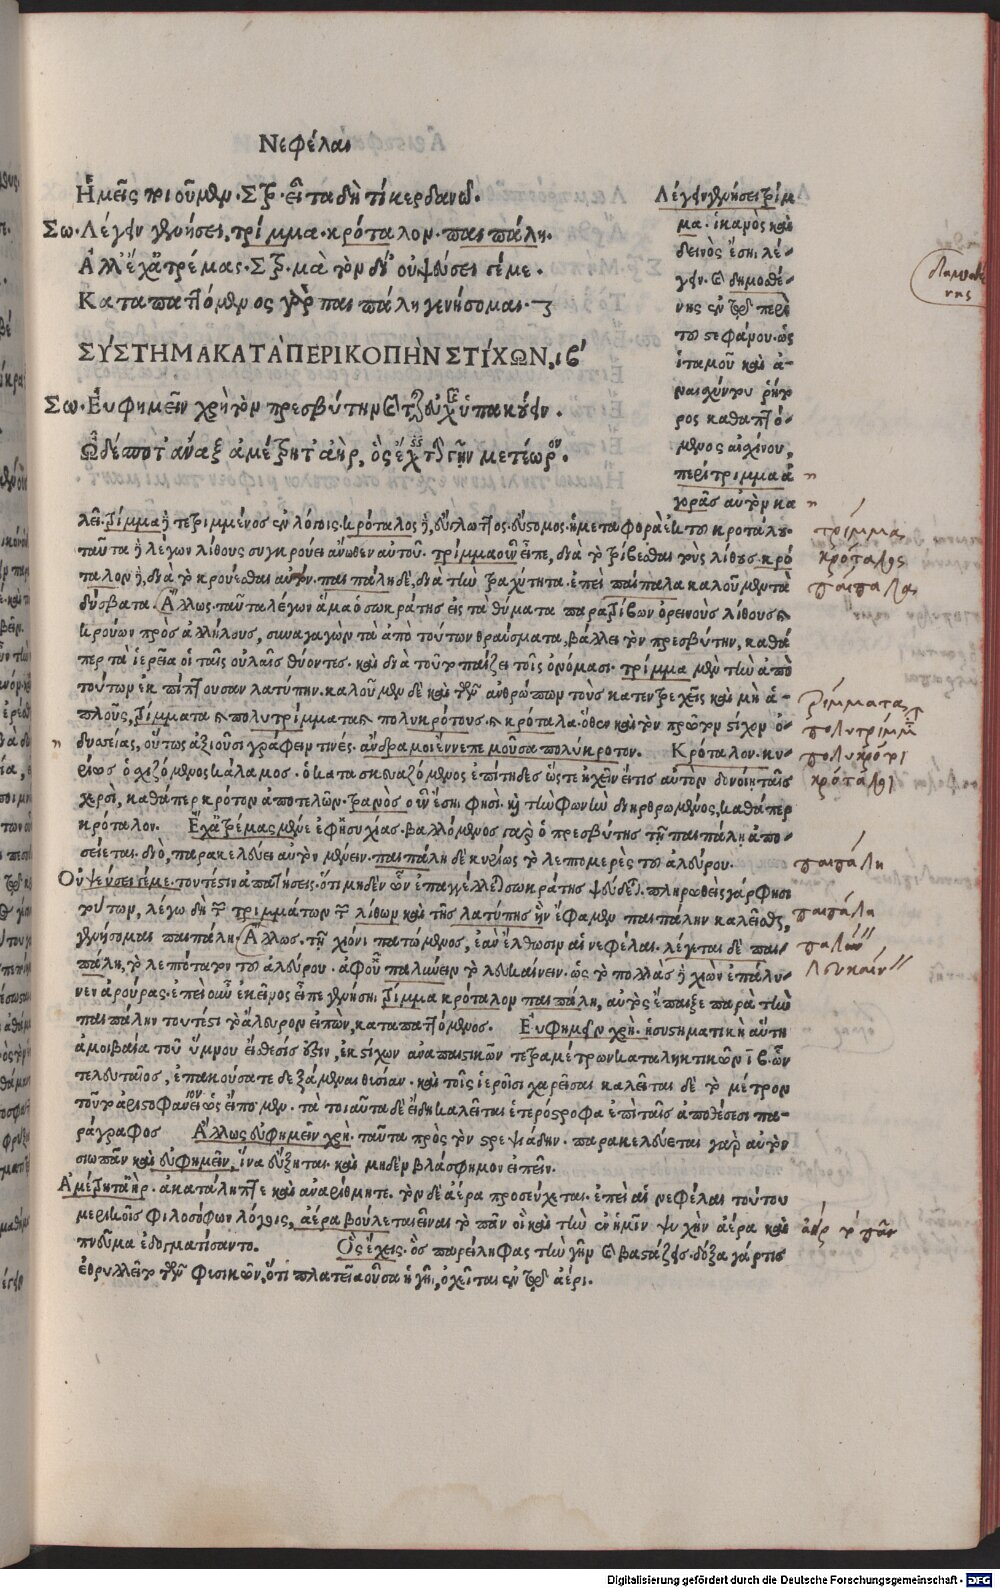 Νεφέλαι
Ἡμεῖς ποιοῦμεν. Στρ. εἶτα δὴ τί κερδανῶ.
Σω. Λέγειν γενήσει, τρίμμα. κρόταλον. παιπάλη.
Ἀλλ' ἔχ' ἀτρέμας. Στρ. μὰ τὸν δί' οὐ ψεύσει γέ με.
Καταπαττόμενος γὰρ παιπάλη γενήσομαι.
ΣΥΣΤΗΜΑ ΚΑΤΑ ΠΕΡΙΚΟΠΗΝ ΣΤΙΧΩΝ, ιβ'
Σω. Εὐφημεῖν χρὴ τὸν πρεσβύτην καὶ τῆς εὐχῆς ὑπακούειν.
Ὦ δέσποτ' ἄναξ ἀμέτρητ' ἀήρ, ὃς ἔχεις τὴν γῆν μετέωρον.
Λέγειν γενήσει τρίμ
μα. ἱκανὸς καὶ
δεινὸς ἔσῃ λέ-
γειν. καὶ δημοσθέ-
νης ἐν τῷ περὶ
τοῦ στεφάνου. ὡς
ἰταμοῦ καὶ ἀ-
ναισχύντου ῥήτο
ρος καθαπτό-
μενος αἰσχίνου,
περίτριμμα ἀ
γορᾶς αὐτὸν κα
λεῖ. τρίμμα ἢ τετριμμένος ἐν λόγοις. κρόταλος ἢ, εὔγλωττος. εὔστομος. ἡ μεταφορὰ ἐκ τοῦ κροτάλου.
ταῦτα ἢ λέγων λίθους συγκρούει ἄνωθεν αὐτοῦ. τρίμμα οὖν εἶπε, διὰ τὸ τρίβεσθαι τοὺς λίθους. κρό
ταλον ἢ, διὰ τὸ κρούεσθαι αὐτόν. παιπάλη δὲ, διὰ τὴν τραχύτητα. ἐπεὶ παίπαλα καλοῦμεν τὰ
δύσβατα. Ἄλλως. ταῦτα λέγων ἅμα ὁ σωκράτης εἰς τὰ θύματα παρατρίβων ὀρεινοὺς λίθους καὶ
κρούων πρὸς ἀλλήλους, συναγαγὼν τὰ ἀπὸ τούτων θραύσματα, βάλλει τὸν πρεσβύτην, καθά
περ τὰ ἱερεῖα οἱ ταῖς οὐλαῖς θύοντες. καὶ διὰ τοῦτο παίζει τοῖς ὀνόμασι. τρίμμα μὲν τὴν ἀπὸ
τούτων ἐκπίπτουσαν λατύπην. καλοῦμεν δὲ καὶ τῶν ἀνθρώπων τοὺς κατεντρεχεῖς καὶ μὴ ἁ-
πλοῦς, τρίμματα καὶ πολυτρίμματα καὶ πολυκρότους. καὶ κρόταλα. ὅθεν καὶ τὸν πρῶτον στίχον ὀ-
δυσσείας, οὕτως ἀξιοῦσι γράφειν τινές. ἄνδρα μοι ἔννεπε μοῦσα πολύκροτον. Κρόταλον. κυ-
ρίως ὁ σχιζόμενος κάλαμος. ὁ κατασκευαζόμενος ἐπίτηδες ὥστε ἠχεῖν εἴ τις αὐτὸν δονοίη ταῖς
χερσὶ, καθάπερ κρότον ἀποτελῶν. τρανὸς οὖν ἔσῃ φησὶ. καὶ τὴν φωνὴν διηρθρωμένος, καθάπερ
κρόταλον. Ἔχ' ἀτρέμας μένε ἐφ' ἡσυχίας. βαλλόμενος γὰρ ὁ πρεσβύτης τῇ παιπάλῃ ἀπο-
σείεται. διὸ, παρακελεύει αὐτὸν μένειν. παιπάλη δὲ κυρίως τὸ λεπομερὲς τοῦ ἀλεύρου.
Οὐ ψεύσει γέ με. τουτέστιν ἀπατήσεις. ὅτι μηδὲν ὧν ἐπαγγέλλεται σωκράτης ψεύδεται. πληρωθεὶς γάρ φησι
τούτων, λέγω δὴ τῶν τριμμάτων τῶν λίθων καὶ τῆς λατύπης ἣν ἔφαμεν παιπάλην καλεῖσθαι,
γενήσομαι παιπάλη. Ἄλλως. τῇ χιόνι πατώμενος, ἐὰν ἔλθωσιν αἱ νεφέλαι. λέγεται δὲ παι-
πάλη, τὸ λεπτότατον τοῦ ἀλεύρου. ἀφ' οὗ παλύνειν τὸ λευκαίνειν. ὡς τὸ πολλὰς ἢ χιὼν ἐπάλυ-
νεν ἀρούρας. ἐπεὶ οὖν ἐκεῖνος εἶπε γενήσῃ τρίμμα κρόταλον παιπάλη, αὐτὸς ἔπαιξε παρὰ τὴν
παιπάλην τουτέστι τὸ ἄλευρον εἰπὼν, καταπαττόμενος. Εὐφημεῖν χρή. ἡ συστηματικὴ αὕτη
ἀμοιβαία τοῦ ὕμνου εἴσθεσίς ἐστιν, ἐκ στίχων ἀναπαιστικῶν τετραμέτρων καταληκτικῶν ιβ. ὧν
τελευταῖος, ἐπακούσατε δεξάμεναι θυσίαν. καὶ τοῖς ἱεροῖσι χαρεῖσαι καλεῖται δὲ τὸ μέτρον
τοῦτο ἀριστοφάνειον ὡς εἴπομεν. τὰ τοιαῦτα δὲ εἴδη καλεῖται ἑτερόστροφα ἐπὶ ταῖς ἀποθέσεσι πα-
ράγραφος Ἄλλως εὐφημεῖν χρή. ταῦτα πρὸς τὸν στρεψιάδην. παρακελεύεται γὰρ αὐτὸν
σιωπᾶν καὶ εὐφημεῖν, ἵνα εὔξηται. καὶ μηδὲν βλάσφημον εἰπεῖν.
Ἀμέτρητ' ἀήρ. ἀκατάληπτε καὶ ἀναρίθμητε. τὸν δὲ ἀέρα προσεύχεται. ἐπεὶ αἱ νεφέλαι τούτου
μερικοῖς φιλοσόφων λόγοις, ἀέρα βούλεται εἶναι τὸ πᾶν οἳ καὶ τὴν ἐν ἡμῖν ψυχὴν ἀέρα καὶ
πνεῦμα ἐδογματίσαντο. Ὃς ἔχεις. ὃς παρείληφας τὴν γῆν καὶ βαστάζεις. δόξα γάρ τις
ἐθρυλλεῖτο τῶν φυσικῶν, ὅτι πλατεῖα οὖσα ἡ γῆ, ὀχεῖται ἐν τῷ ἀέρι.
δημοσθέ
νης
τρίμμα
κρόταλος
παίπαλα
τρίμματα
πολυτρίμμ
πολυκρότοι
κρόταλοι
παιπάλη
παιπάλη
παλύν
λευκαίν
ἀὴρ τὸ πᾶν
Digitalisierung gefördert durch die Deutsche Forschungsgemeinschaft - DFG